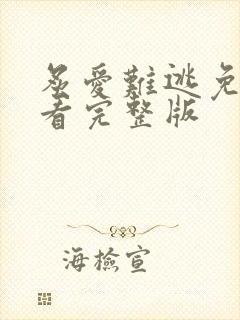 炱愛難逃免
看完整版
海檢宣